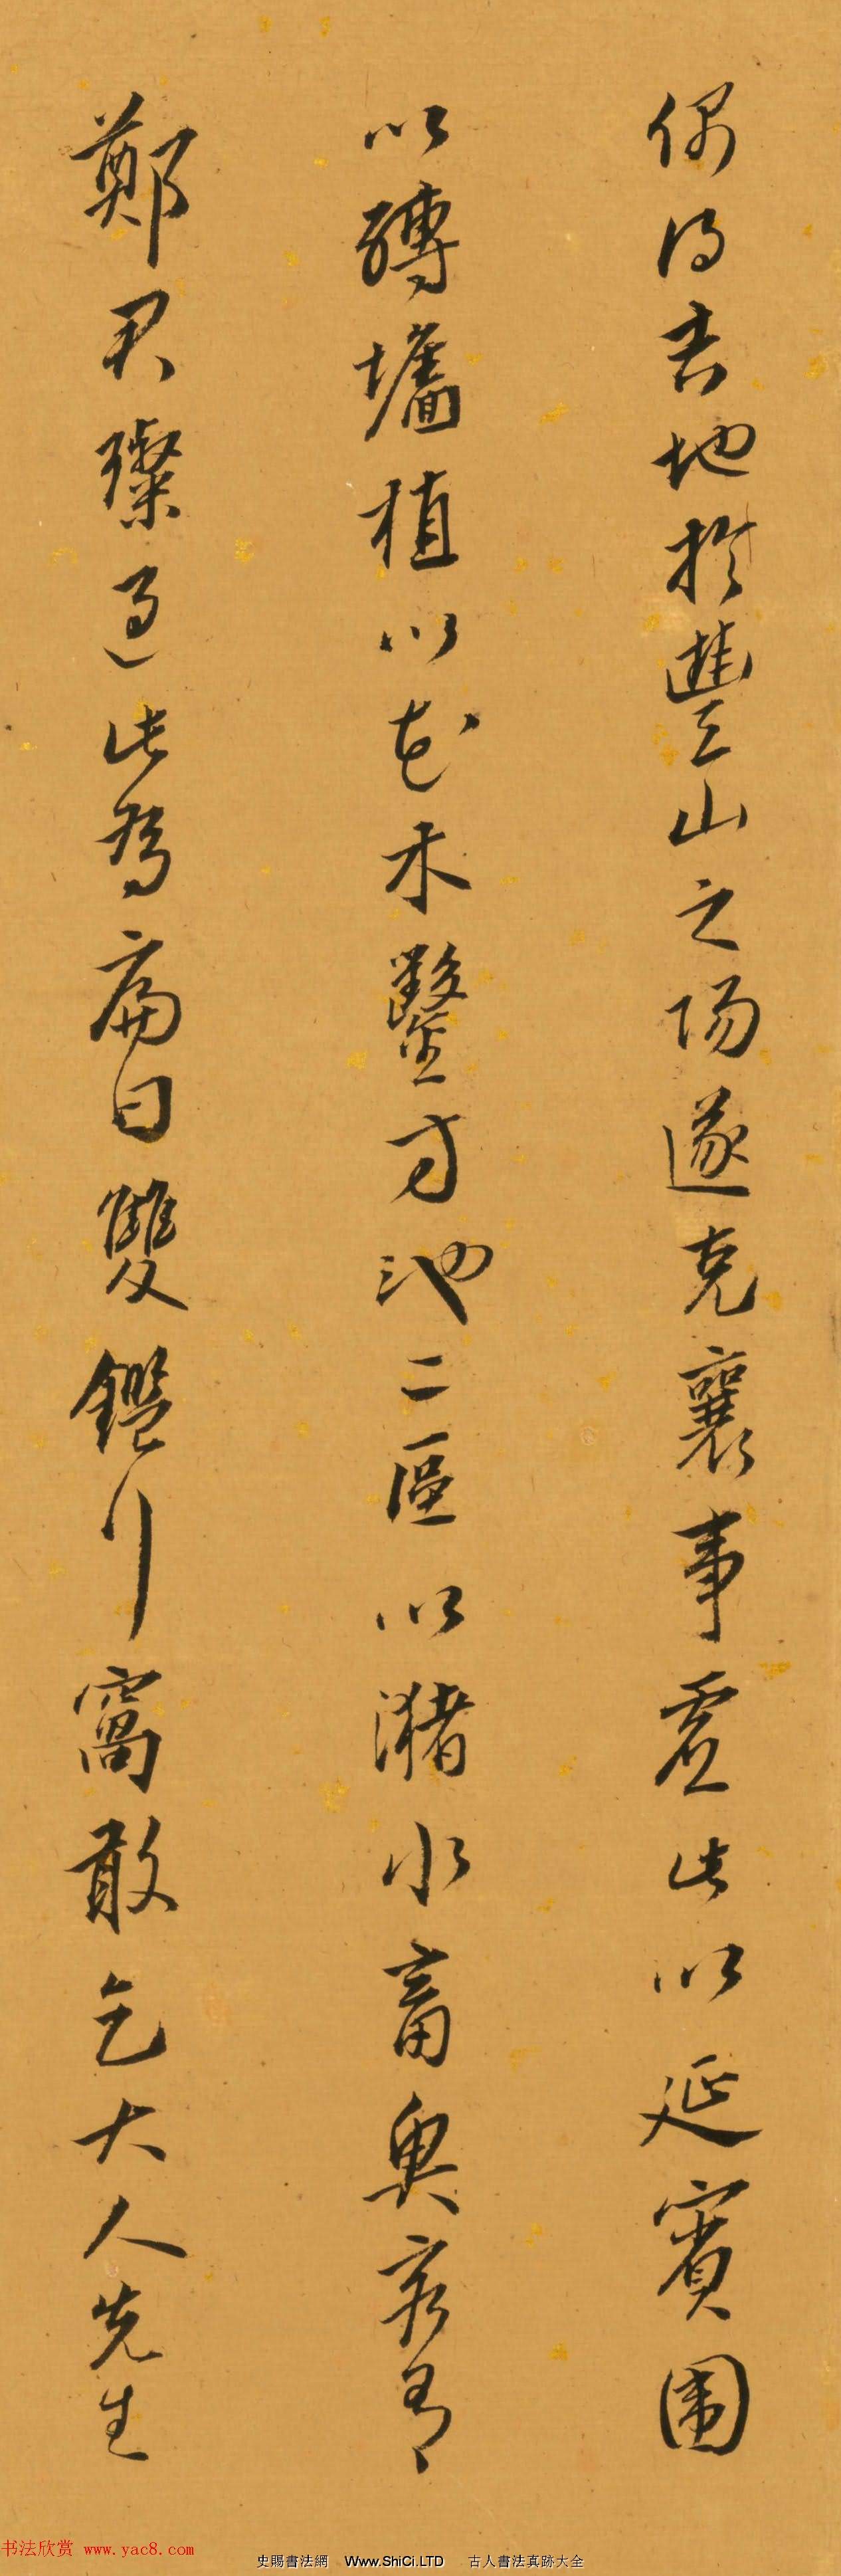 偶得吉地於豐山之陽遂克襄事虛此以延賓圍
以磚墻植以花木鑿方池二區以瀦水畜魚客有
鄭君璨過此為扁曰雙鑑行窩敢乞大人先生
书法欣赏 www.yac8.com
史賜書法網 Www.ShiCi.LTD 古人書法真跡大全